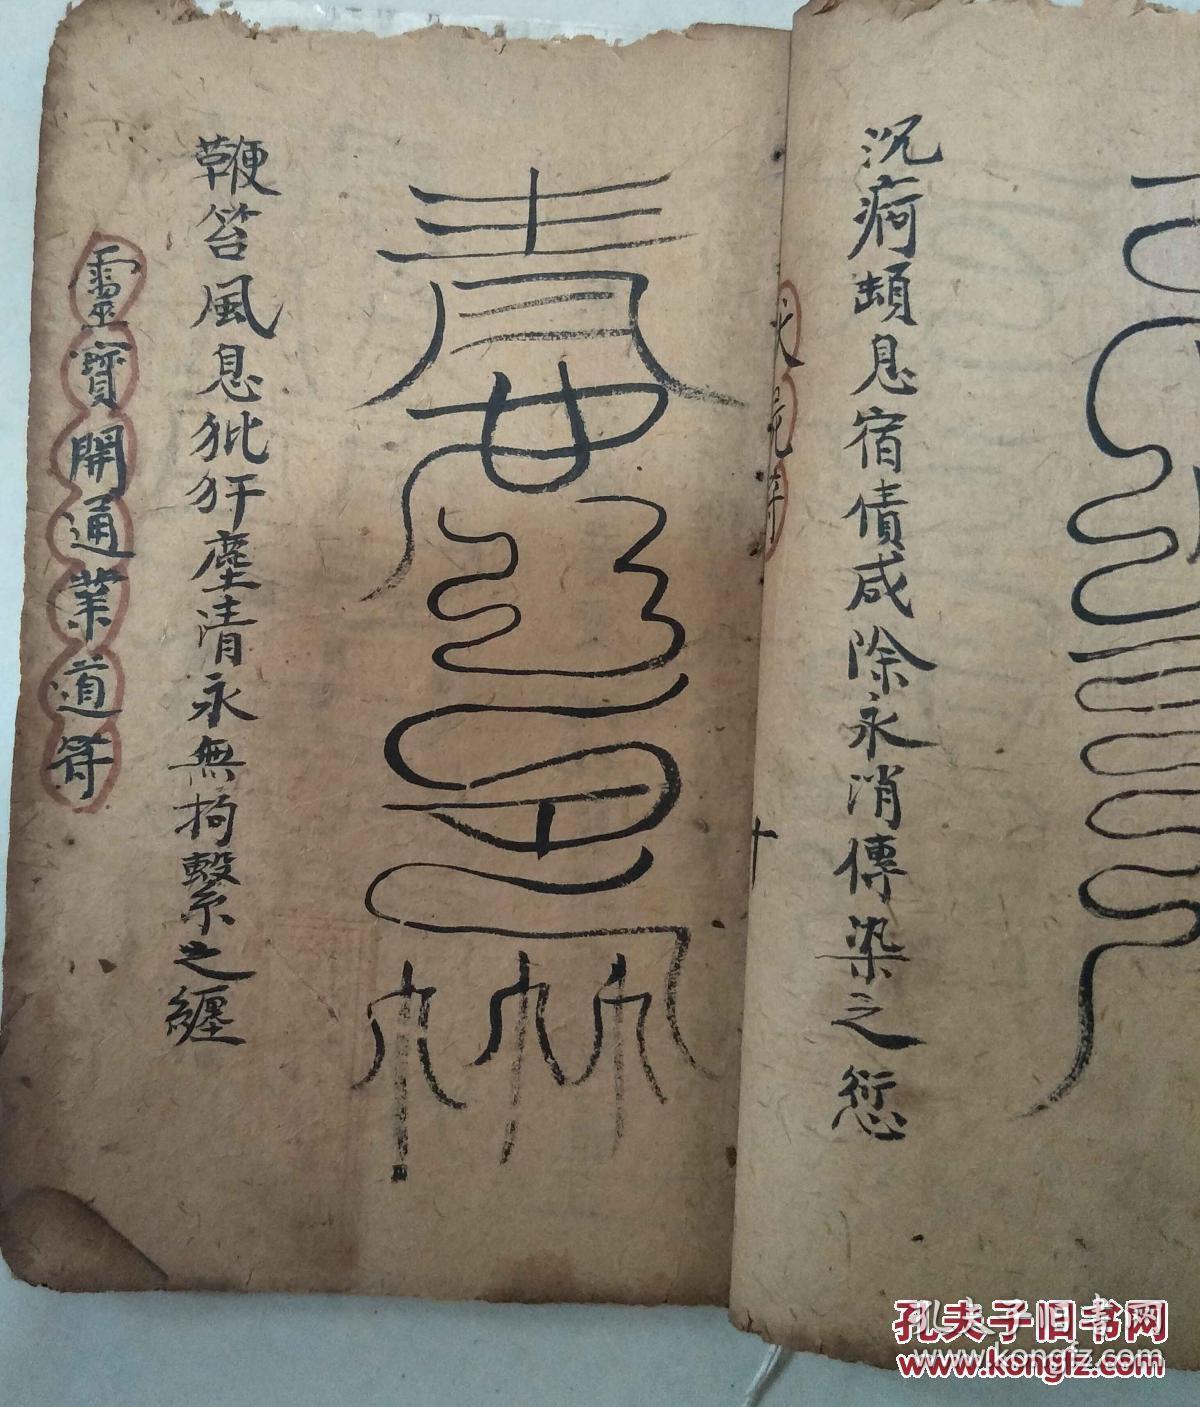 沉痾頓息宿債咸除永消傳染之愆
鞭笞風息狴犴塵清永無拘繫之纏
靈寶開通業道符
孔夫子旧书网
www.kongfz.com